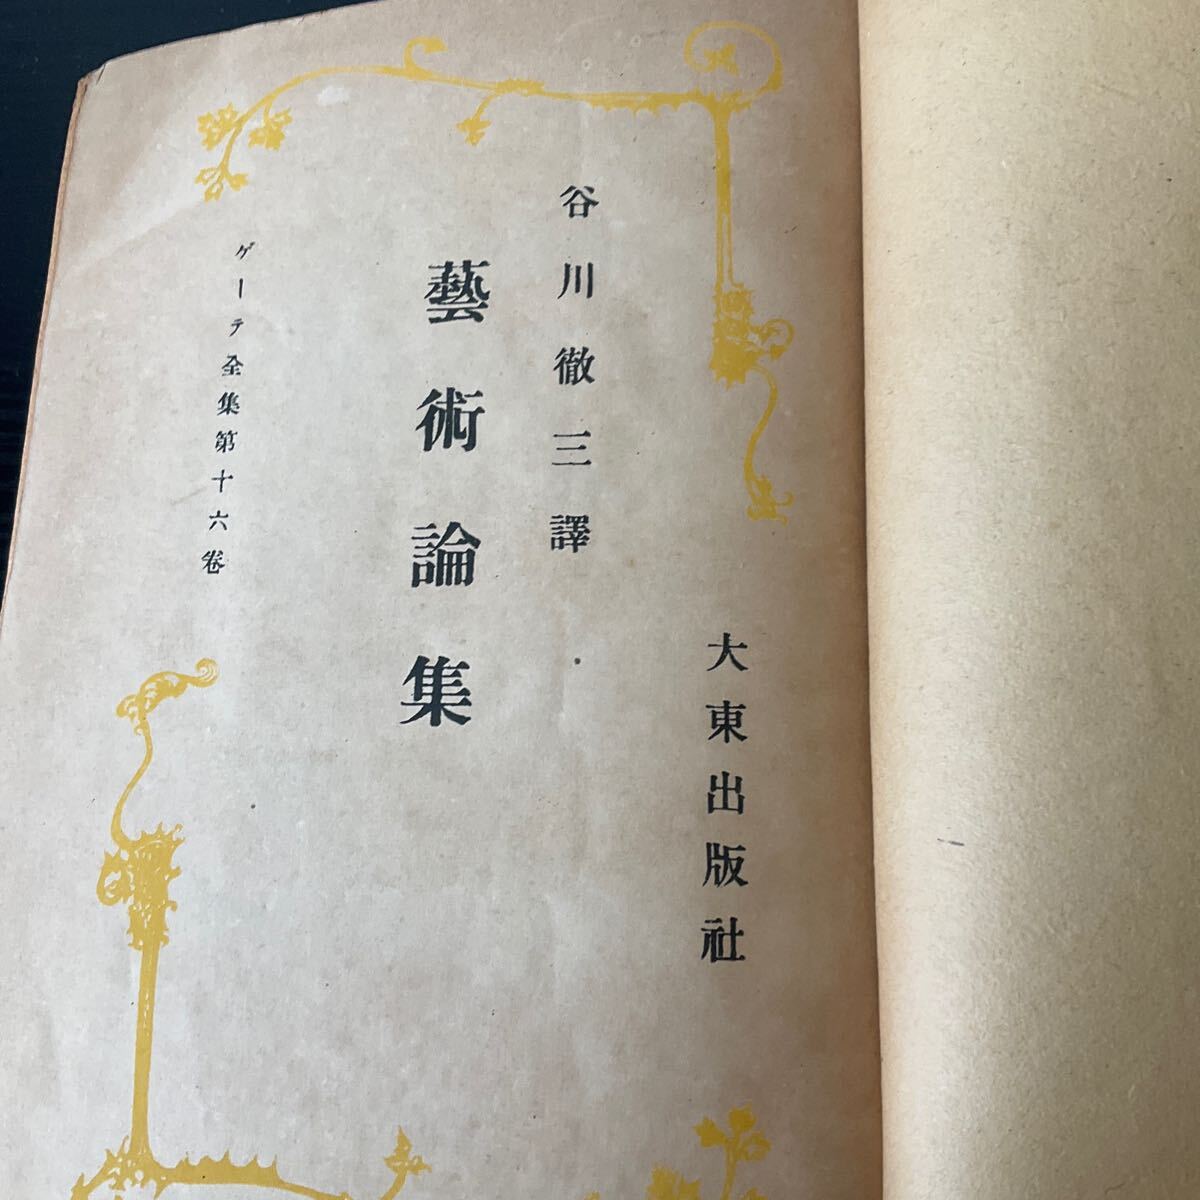 大東出版社
谷川徹三譯
藝術論集
ゲーテ全集第十六卷